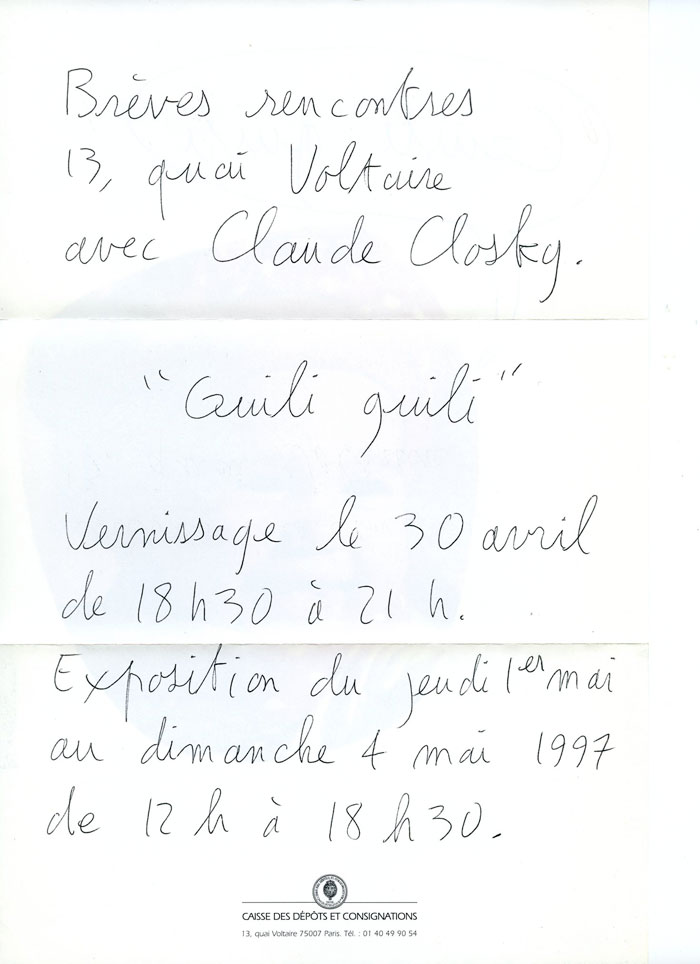 Brèves rencontres
13, quai Voltaire
avec Claude Closky.
"Guili guili"
Vernissage le 30 avril
de 18h30 à 21 h.
Exposition du jeudi 1er mai
au dimanche 4 mai 1997
de 12 h à 18 h 30.
CAISSE DES DÉPÔTS ET CONSIGNATIONS
13, quai Voltaire 75007 Paris. Tél. : 01 40 49 90 54